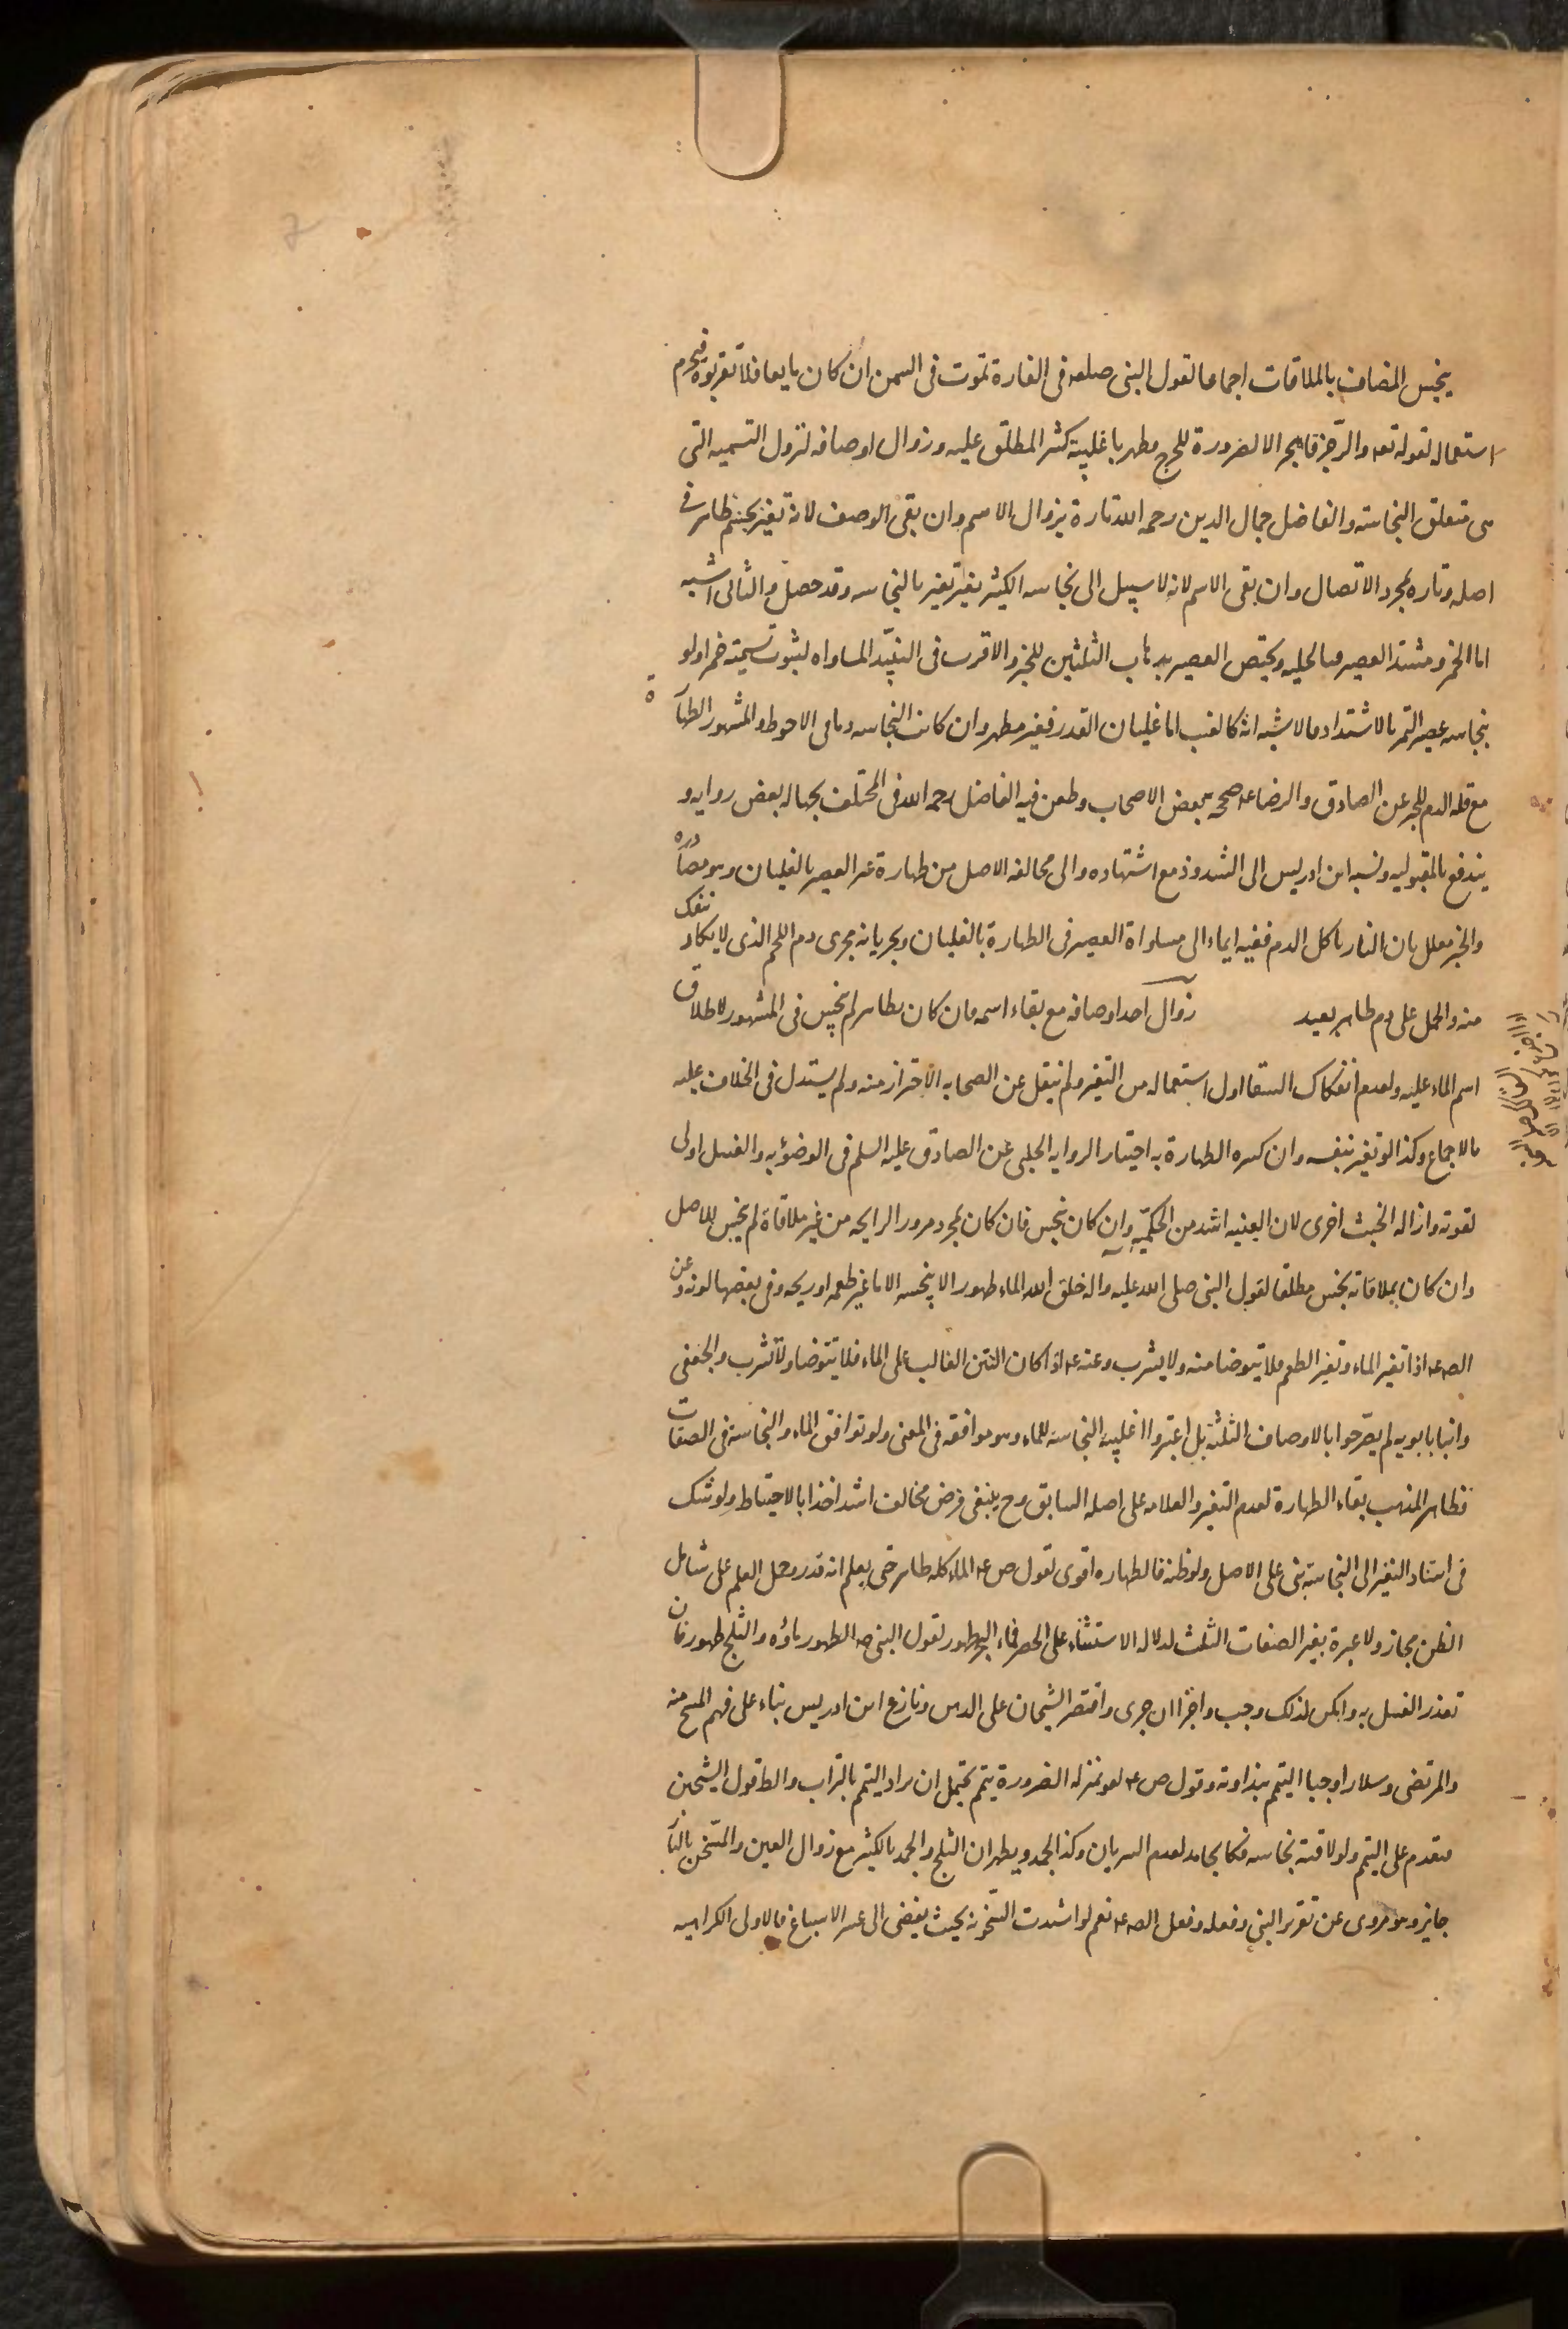 ينجس المضاف بالملاقات اجماعا لقول النبى صلعم فى الفارة تموت فى السمن ان كان مايعا فلا تقربوه فيحرم
استعماله لقوله تعه والرّجز فاهجر الا لضرورة للحرج مطهر باغلبية كثير المطلق عليه وزوال اوصافه لتزول التسميه التى
هى متعلق النجاسته والفاضل جمال الدين رحمه الله تارة بزوال الاسم وان بقى الوصف لانه تغير بجسم طاهر فى
اصله وتاره بمجرد الاتصال وان بقى الاسم لانه لا سبيل الى نجاسه الكثير بغير تغير بالنجاسه وقد حصل والثانى اشبه
اما الخمر ومشتد العصير فبالخليه ويختص العصير بذهاب الثلثين للخبر والاقرب فى النبيذ المساواه لثبوت تسميته خمرا ولو
بنجاسه عصير التمر بالاشتداد فالاشبه انه كالعنب اما غليان القدر فغير مطهر وان كانت النجاسه دما فى الاحوط والمشهور الطهارة
مع قله الدم للخبر عن الصادق والرضا عه صححه بعض الاصحاب وطعن فيه الفاضل رحمه الله فى المختلف بجهاله بعض رواته و
يندفع بالمقبوليه ونسبه ابن ادريس الى الشذوذ مع اشتهاره والى مخالفه الاصل من طهارة غير العصير بالغليان وهو مصادره
والخبر معلل بان النار تاكل الدم ففيه ايماء الى مساواة العصير فى الطهارة بالغليان وبجريانه مجرى دم اللحم الذى لا يكاد ينفك
منه والحمل على دم طاهر بعيد زوال احد اوصافه مع بقاء اسمه فان كان بطاهر لم ينجس فى المشهور لاطلاق
اسم الماء عليه ولعدم انفكاك السقا اول استعماله من التغير ولم ينقل عن الصحابه الاحتراز منه ولم يستدل فى الخلاف عليه
بالاجماع وكذا لو تغير بنفسه وان كره الطهارة به اختيارا لروايه الحلبى عن الصادق عليه السلم فى الوضؤ به والغسل اولى
لقوته وازاله الخبث احرى لان العينيه اشد من الحكميّه وان كان بنجس فان كان بمجرد مرور الرايحه من غير ملاقاة لم ينجس للاصل
وان كان بملاقاته نجس مطلقا لقول النبى صلى الله عليه واله خلق الله الماء طهورا لا ينجسه الا ما غير طعمه او ريحه وفى بعضها لونه وعن
الصه عه اذا تغير الماء وتغير الطعم فلا تتوضا منه ولا يشرب وعنه عه اذا كان النتن الغالب على الماء فلا تتوضا ولا تشرب والجعفى
وابنا بابويه لم يصرّحوا بالاوصاف الثلثة بل اعتبروا اغلبية النجاسة للماء وهو موافقه فى المعنى ولو توافق الماء والنجاسة فى الصفات
فظاهر المذهب بقاء الطهارة لعدم التغير والعلامه على اصله السابق وح ينبغى فرض مخالف اشد اخذا بالاحتياط ولو شك
فى استناد التغير الى النجاسة بنى على الاصل ولو ظنه فالطهاره اقوى لقول ص عه الماء كله طاهر حتى يعلم انه قذر وحمل العلم على شامل
الظن مجاز ولا عبرة بغير الصفات الثلث لدلاله الاستثناء على الحصر فماء البحر طهور لقول النبى صه الطهور ماؤه والثلج طهور فان
تعذر الغسل به وامكن لذلك وجب واجزا ان جرى واقتصر الشيخان على الدهن ونازع ابن ادريس بناء على فهم المسح منه
والمرتضى وسلار اوجبا التيمم بنداوته وقول ص عه هو بمنزله الضرورة يتيمم يحتمل ان يراد التيمم بالتراب والظ قول الشيخين
فتقدم على التيمم ولو لاقته نجاسه فكالجامد لعدم السريان وكذا الجمد ويطهران الثلج والجمد بالكثير مع زوال العين والمسّخن بالنار
جايز وهو مروى عن تقرير النبى وفعله وفعل الصه عه نعم لو اشتدت السّخونه بحيث يفضى الى عسر الاسباغ فالاولى الكراهيه